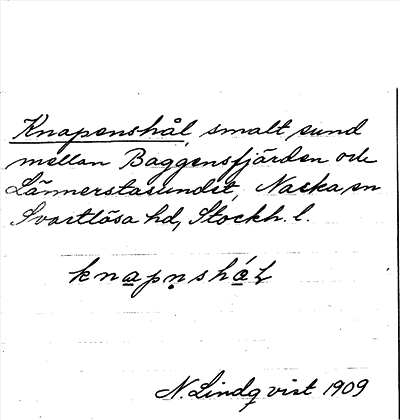 Knapenshål, smalt sund
mellan Baggensfjärden och
Lännerstasundet, Nacka sn
Svartlösa hd, Stockh. l.
knapn̥shál
N. Lindqvist 1909